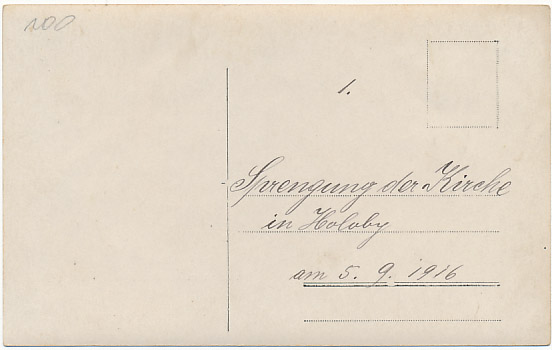 100
1.
Sprengung der Kirche
in Holoby
am 5. 9. 1916